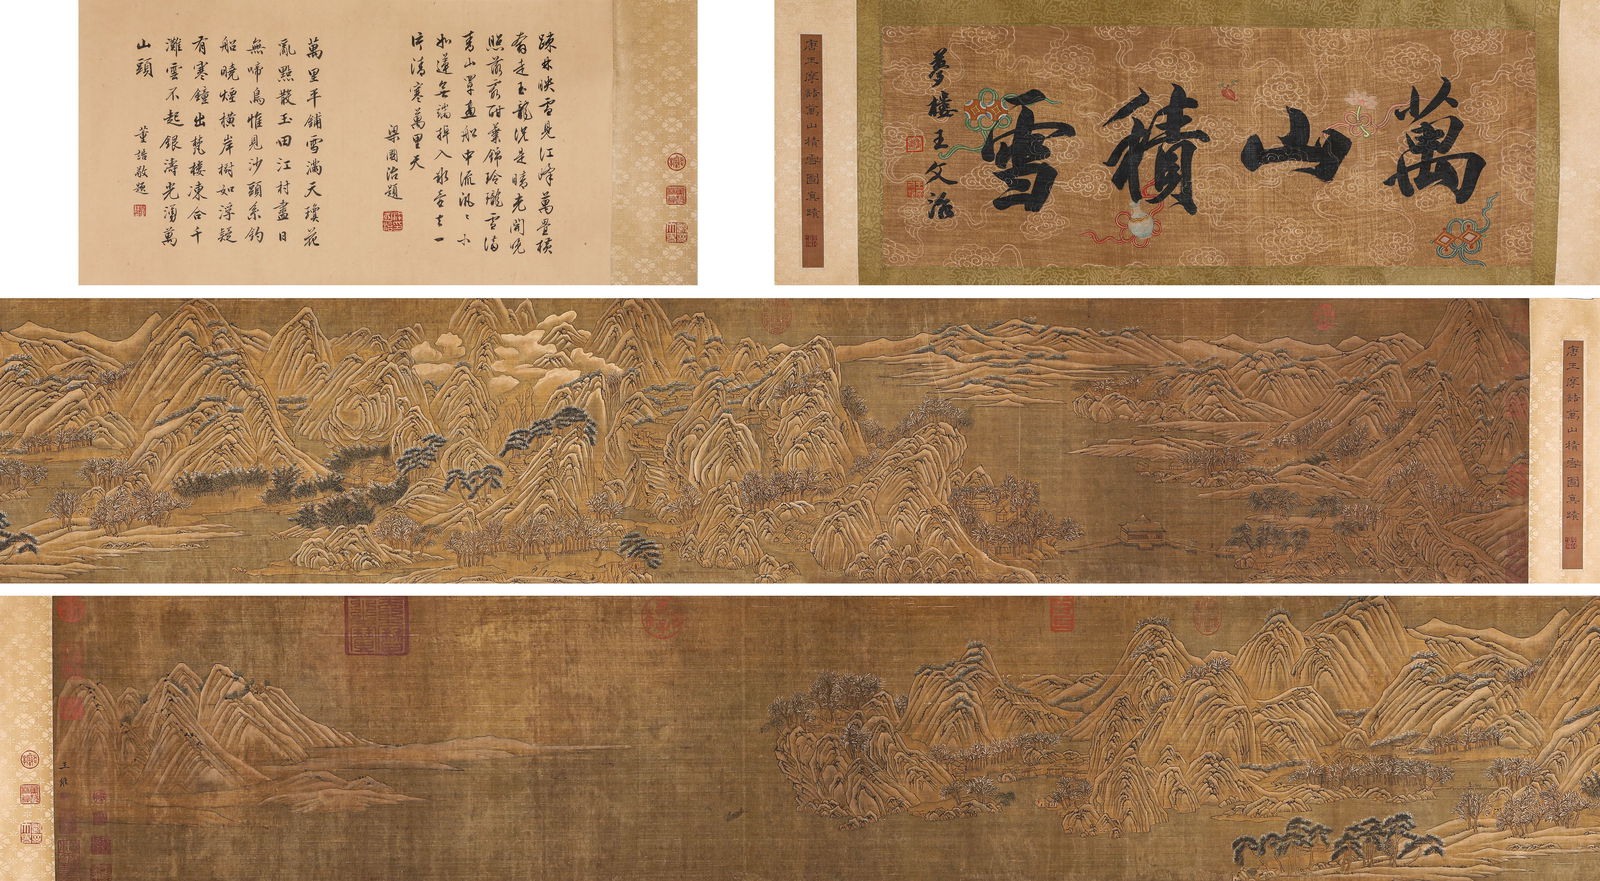 萬山積雪
夢樓王文治
唐王摩詰萬山積雪圖真蹟
疎林映雪見江峰萬疊橫
看走玉龍況是晴光開晚
照落霞酣葉錦玲瓏雪滿
青山罩畫船中流汎汎小
如蓮無端
入氷壺去一
片清寒萬里天
梁國治題
萬里平鋪雪滿天瓊花
亂點散玉田江村盡日
無啼鳥惟見沙頭系釣
船曉煙橫岸樹如浮疑
有寒鐘出梵樓凍合千
灘雲不起銀濤光湧萬
山頭
董誥敬題
唐王摩詰萬山積雪圖真蹟
王維